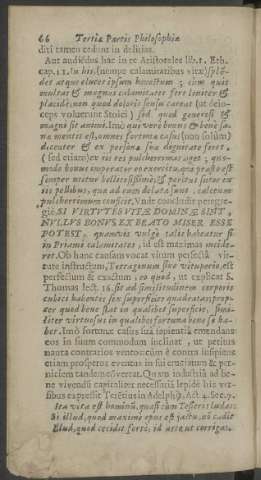 66 Tertia Partis Philosophiæ
diti tamen cedunt in delicias.
Aut audiẽdus hac in re Aristoteles lib. 1. Eth.
cap. 11. In his (nempe calamitatibus vitæ) splẽ-
det atque elucet ipsum honestum; cùm quis
multas & magnas calamitates fert leniter &
placidè; non quod doloris sensu careat (ut dein-
ceps voluerunt Stoici) sed quod generosi &
magni sit animi. Imò qui verè bonus & bonæ sa-
næ mentis est, omnes fortunæ casus (non solùm)
decenter & ex persona sua dignitate feret.
(sed etiam) ex iis res pulcherrimas aget; que-
modo bonus imperator eo exercitu qui præsto est
semper utitur bellicosissimè; & peritus sutor ex
iis pellibus, quæ ad eum delata sunt, calceum
pulcherrimum conficit. Unde concludit peregre-
giè. SI VIRTUTES VITÆ DOMINÆ SINT,
NULLUS BONUS EX BEATO MISER ESSE
POTEST, quamvis vulgò talis habeatur si
in Priami calamitates, id est maximas incide-
ret. Ob hanc causam vocat virum perfectâ vir-
tute instructum, Tetragonum sine vituperio, est
perfectum & exactum; eo quod, ut explicat S.
Thomas lect. 16. sit ad similitudinem corporis
cubici habentis sex superficies quadratas; prop-
ter quod bene stat in qualibet superficie, simi-
liter virtuosus in qualibet fortuna bene se ha-
bet. Imò fortunæ casus suâ sapientiâ emendans
eos in suum commodum inclinat, ut peritus
nauta contrarios ventos: cùm è contra insipiens
etiam prosperos eventus in sui cruciatum & per-
niciem tandem
ne vivendi capescitet necessariâ lepidè his ver-
sibus expressit Terentius in Adelph. Act. 4. Sec. 7.
Ita vita est hominũ, quasi cùm Tesseris ludas:
Si illud, quod maximè opus est jactu, nõ cadit
Illud, quod cecidit fortè, id arte ut corrigas.